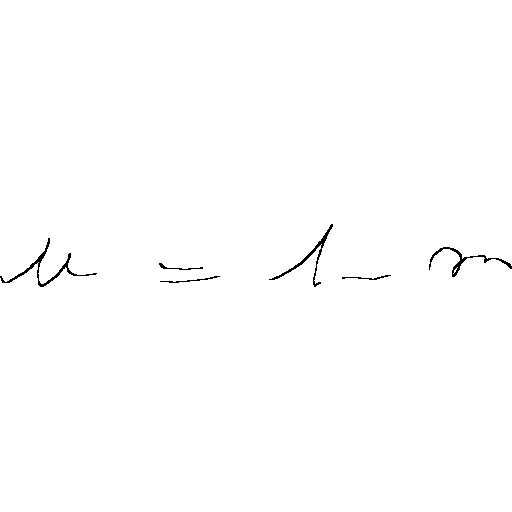 u = 1 - x